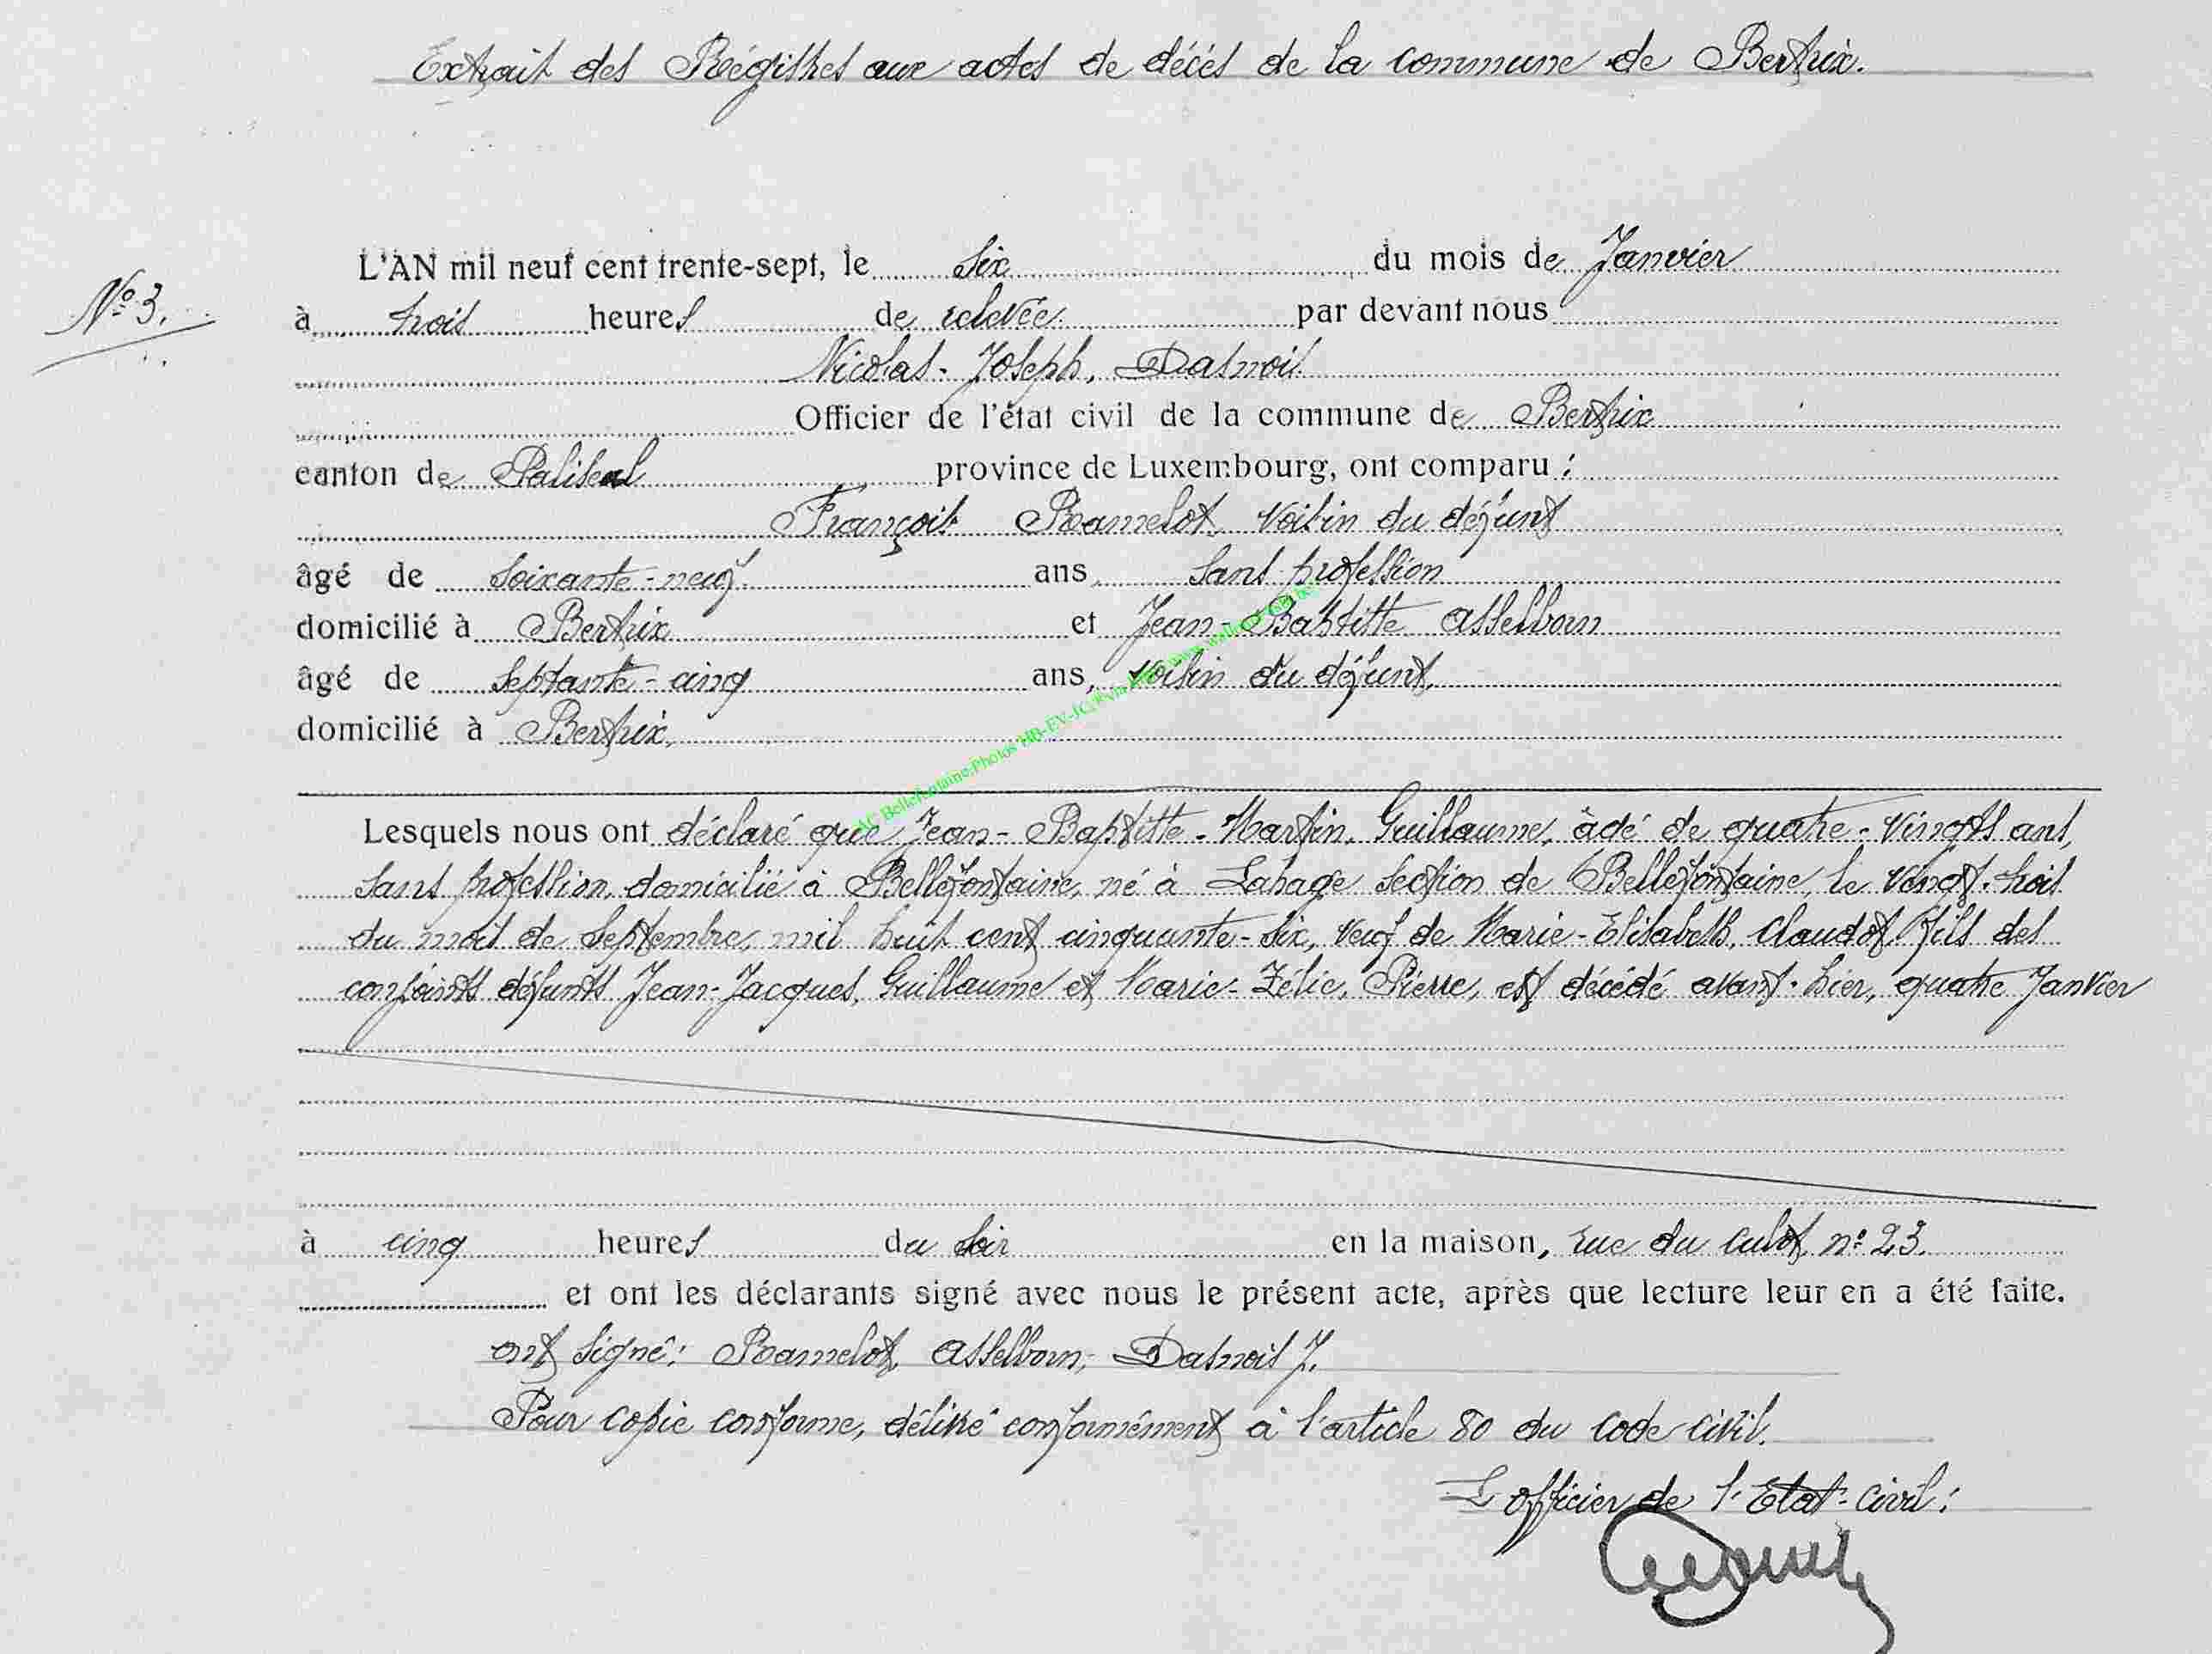 Extrait des Régistres aux actes de décès de la commune de Bertrix.
L'AN mil neuf cent trente-sept, le six du mois de Janvier
N° 3.
à trois heures de relevée par devant nous
Nicolas-Joseph, Dasnois
Officier de l'état civil de la commune de Bertrix
canton de Paliseul province de Luxembourg, ont comparu :
François Ramelot, voisin du défunt
âgé de soixante-neuf ans, sans profession
domicilié à Bertrix et Jean-Baptiste Asselborn
âgé de septante-cinq ans, voisin du défunt,
domicilié à Bertrix.
AC Bellefontaine:Photos
Lesquels nous ont déclaré que Jean-Baptiste-Martin, Guillaume, âgé de quatre-vingts ans,
sans profession, domicilié à Bellefontaine, né à Lahage section de Bellefontaine, le vingt-trois
du mois de Septembre, mil huit cent cinquante-six, veuf de Marie-Elisabeth, Claudot, fils des
conjoints défunts Jean-Jacques, Guillaume et Marie-Zélie, Pierre, est décédé avant-hier, quatre Janvier
à cinq heures du soir en la maison, rue du Culot, n° 23.
et ont les déclarants signé avec nous le présent acte, après que lecture leur en a été faite.
ont signé: Ramelot, Asselborn, Dasnois J.
Pour copie conforme, délivré conformément à l'article 80 du code civil.
L'officier de l'Etat-Civil: